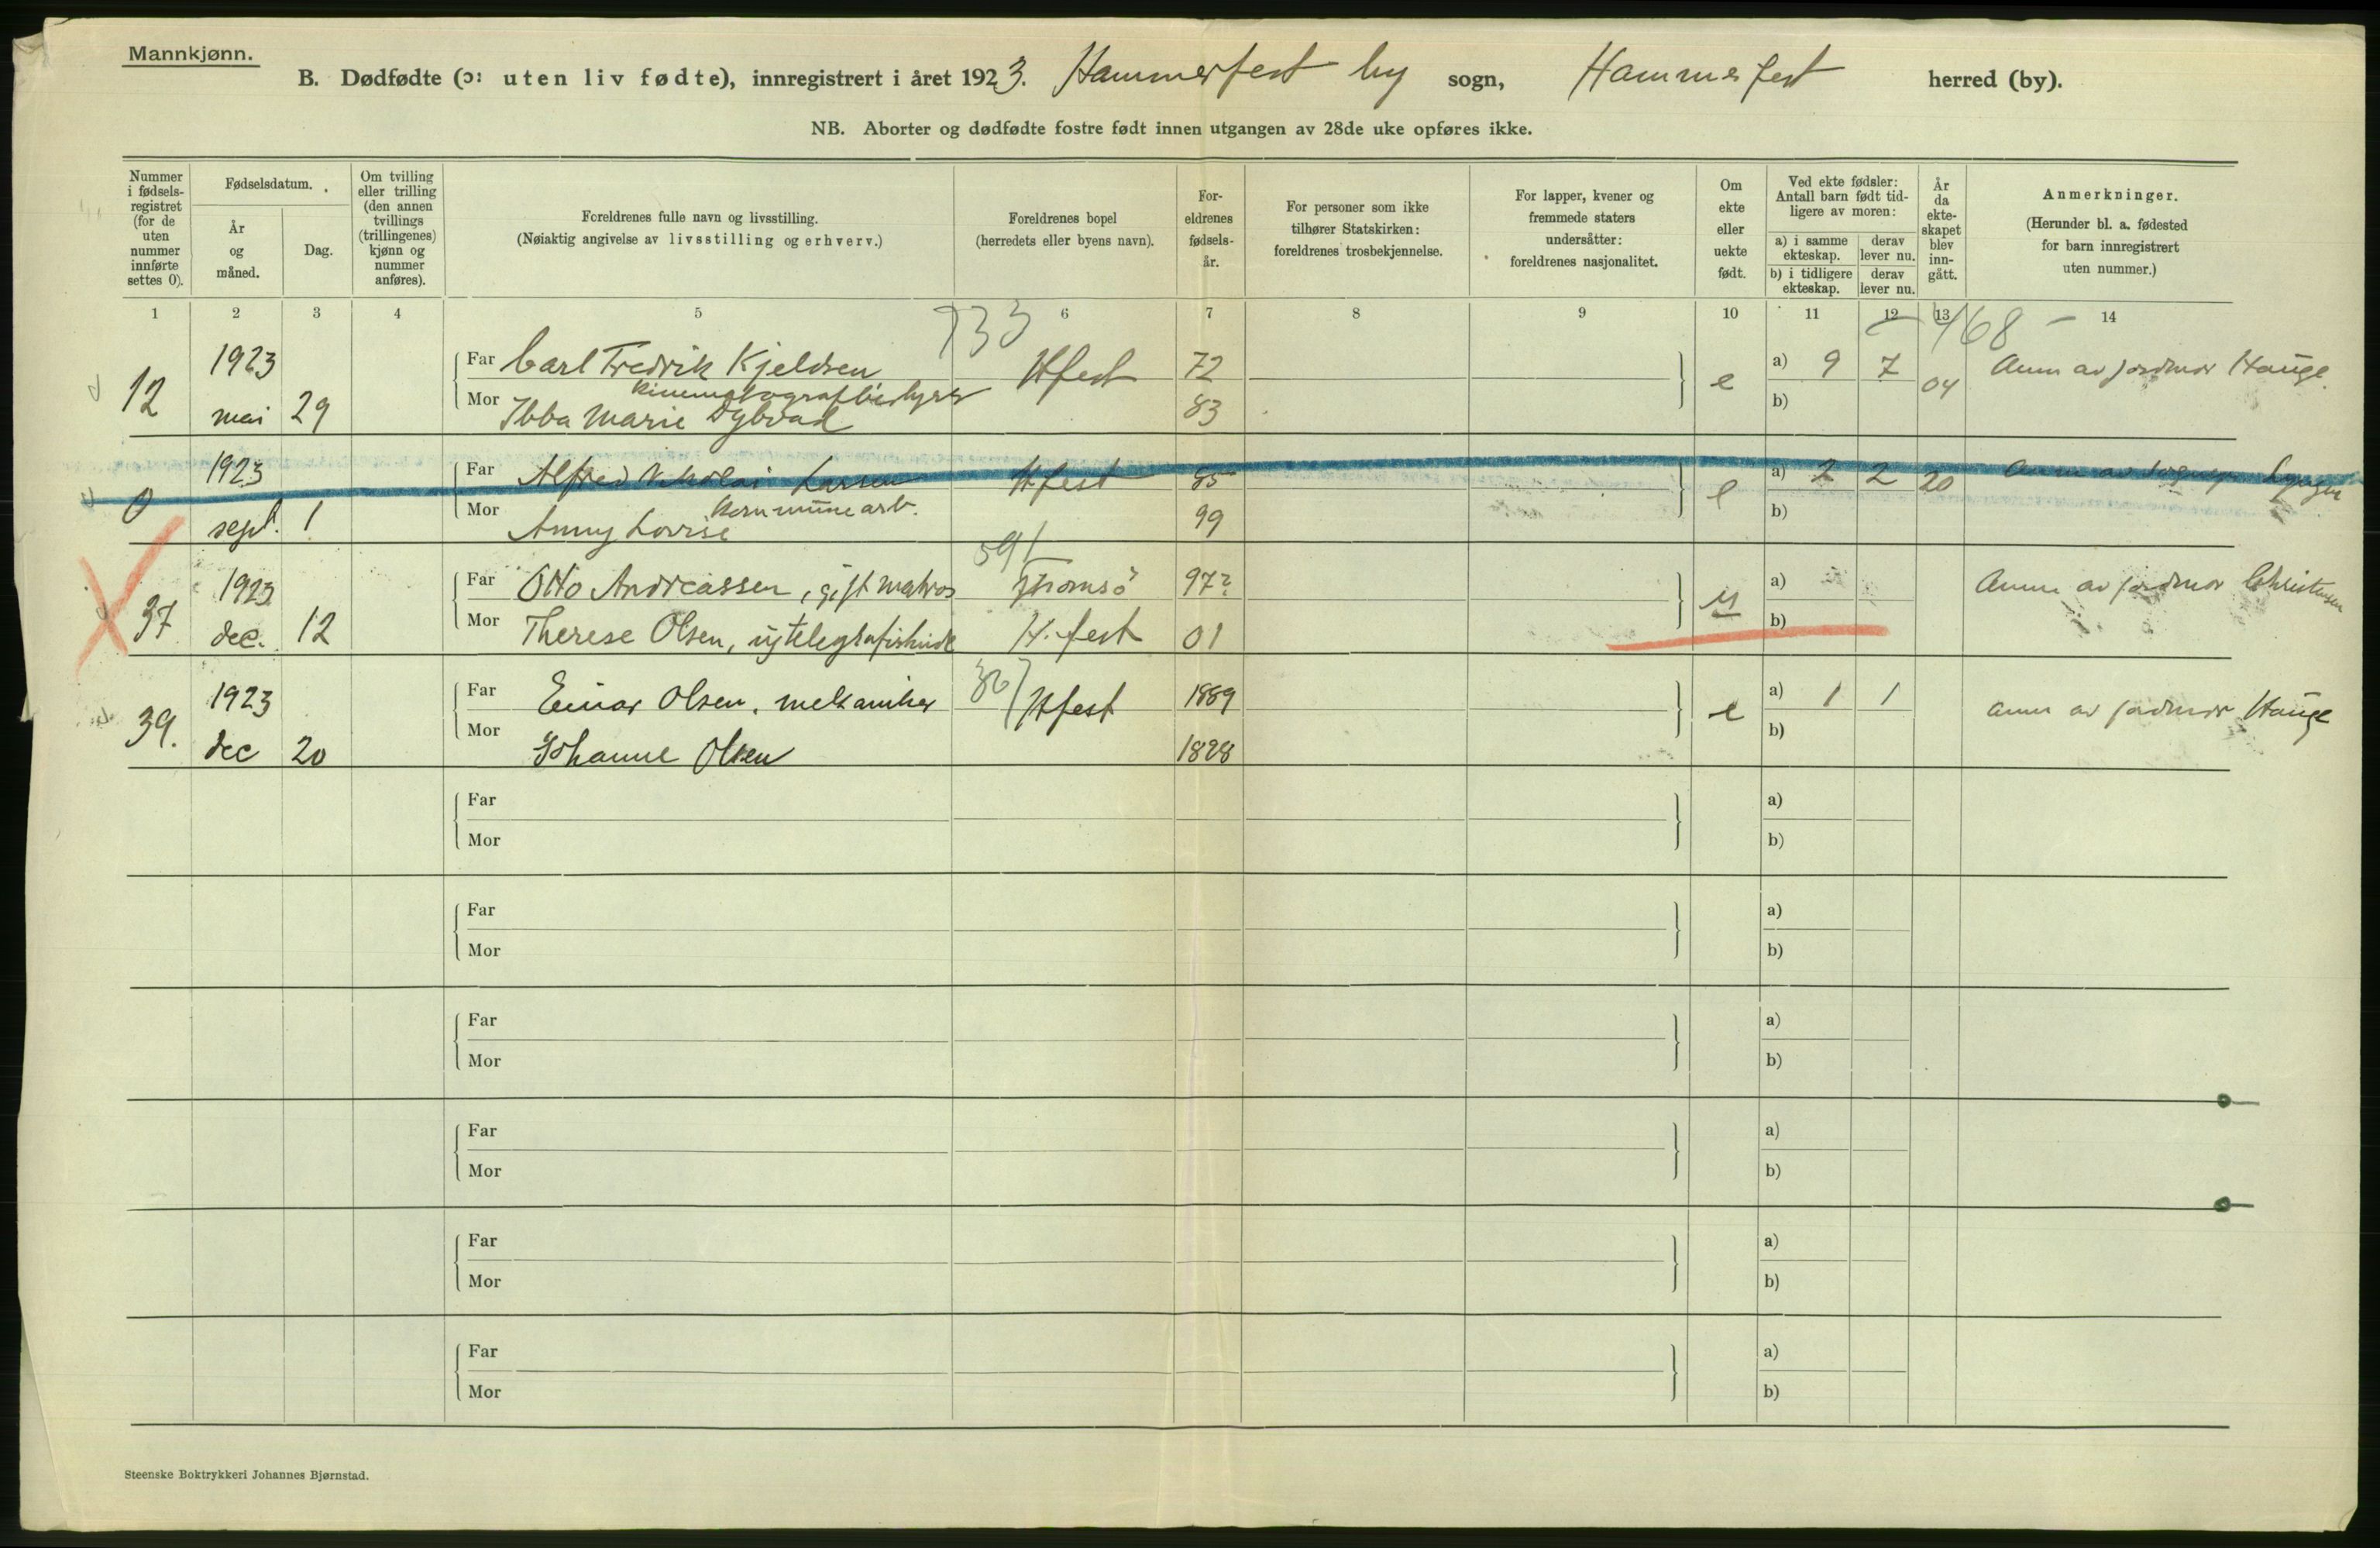 Mannkjønn.
B. Dødfødte (ɔ: uten liv fødte), innregistrert i året 1923. Hammerfest by sogn, Hammerfest herred (by).
NB. Aborter og dødfødte fostre født innen utgangen av 28de uke opføres ikke.
Nummer i fødsels-registret (for de uten nummer innførte settes 0).
Fødselsdatum.
År og måned.
Dag.
Om tvilling eller trilling (den annen tvillings (trillingenes) kjønn og nummer anføres).
Foreldrenes fulle navn og livsstilling.
(Nøiaktig angivelse av livsstilling og erhverv.)
Foreldrenes bopel
(herredets eller byens navn).
For-eldrenes fødsels-år.
For personer som ikke tilhører Statskirken: foreldrenes trosbekjennelse.
For lapper, kvener og fremmede staters undersåtter: foreldrenes nasjonalitet.
Om ekte eller uekte født.
Ved ekte fødsler: Antall barn født tid-ligere av moren:
a) i samme ekteskap. derav lever nu.
b) i tidligere ekteskap. derav lever nu.
År da ekte-skapet blev inn-gått.
Anmerkninger.
(Herunder bl. a. fødested for barn innregistrert uten nummer.)
1 2 3 4 5 6 7 8 9 10 11 12 13 14
733 468
12 1923 mai 29
Far Carl Fredrik Kjeldsen Hfest 72 e a) 9 7 04 Anm av jordmor Hauge
kinematografbestyrer
Mor Ibba Marie Dybvad 83 b)
0 1923 sept. 1
Far Alfred Nikolai Larsen Hfest 85 e a) 2 2 20 Anm av
kommunearb.
Mor Anny Lovise 99 b)
591
37 1923 dec. 12
Far Otto Andreassen, gift matros Tromsö 97? u a) Anm av jordmor Christensen
Mor Therese Olsen, ug telegrafistinde H.fest 01 b)
367
39. 1923 dec 20
Far Einar Olsen, mekaniker Hfest 1889 e a) 1 1 Anm av jordmor Hauge
Mor Johanne Olsen 1898 b)
Far a)
Mor b)
Far a)
Mor b)
Far a)
Mor b)
Far a)
Mor b)
Far a)
Mor b)
Far a)
Mor b)
Steenske Boktrykkeri Johannes Bjørnstad.